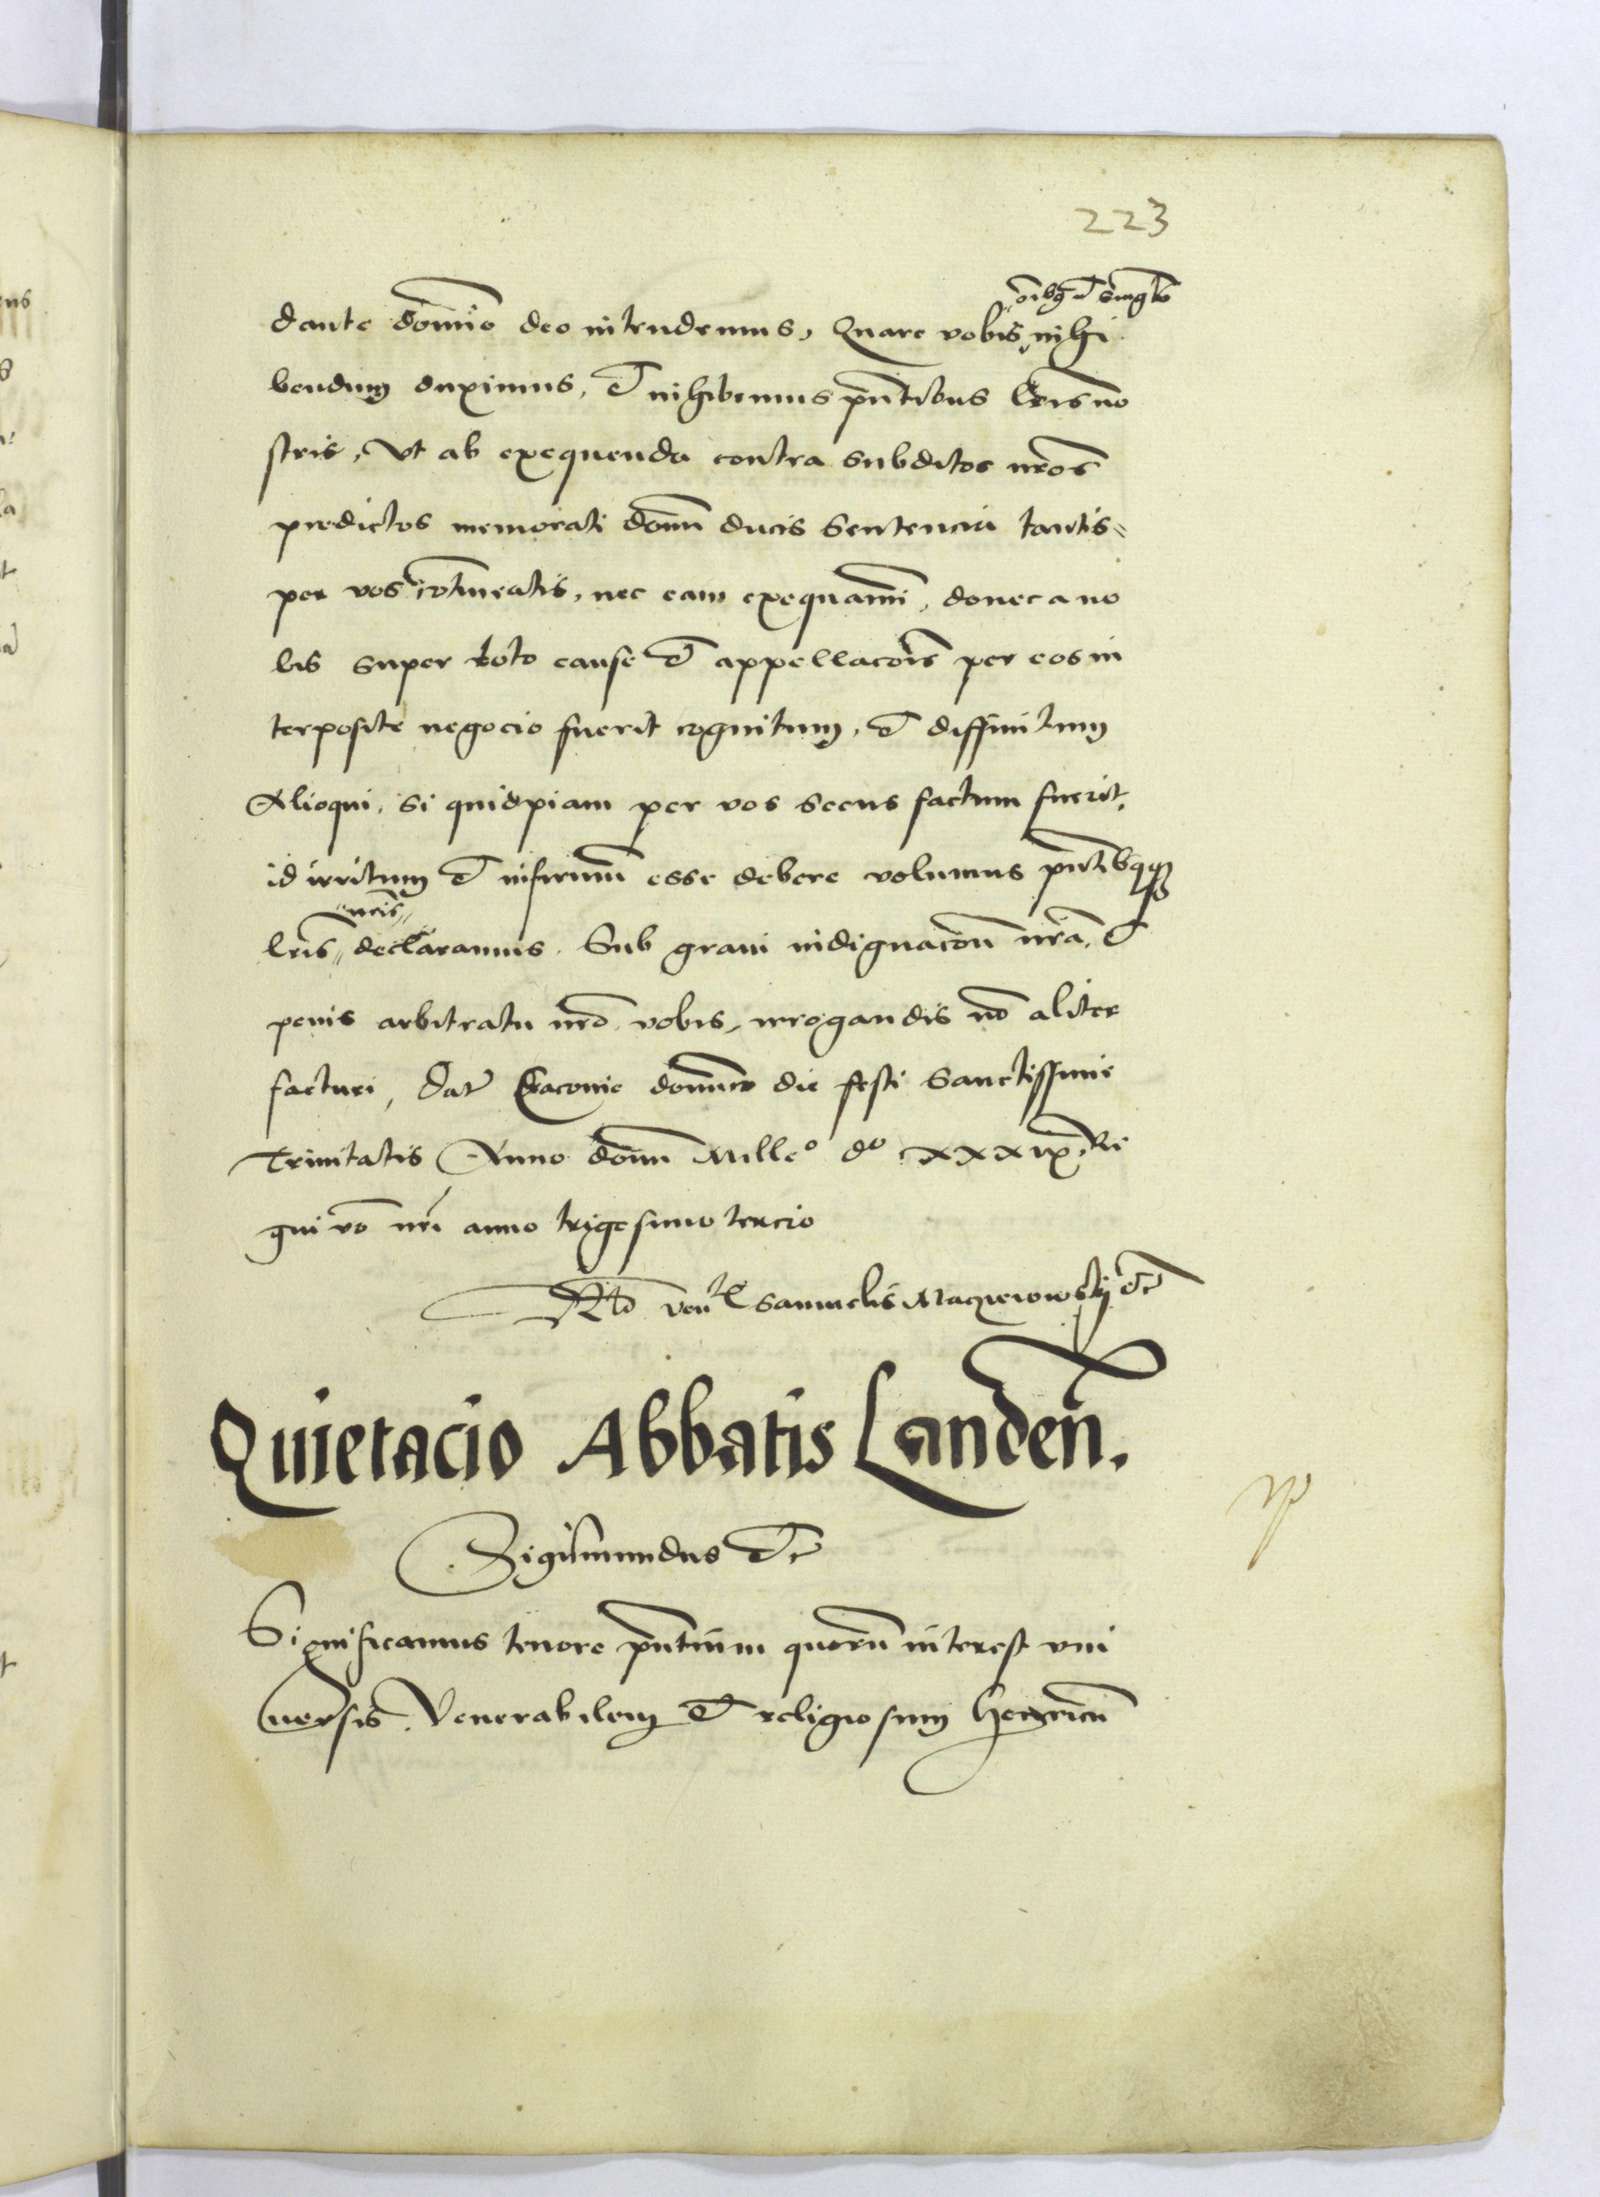 223
oı̅bꝫ et sing̅lis
dante domı̅o deo intendemus, Quare vobis inhi
bendum duximus, et inhibemus pn̅tibus lr̅is no
stris, Vt ab exequenda contra subditos nr̅os
predictos memorati domı̅ ducis sentencia tantis-
per vos contineatis, nec eam exequamı̅, donec a no
bis super toto cause et appellaco̅is per eos in
terposite negocio fuerit cognitum, et diffinitum
Alioqui, si quidpiam per vos secus factum fuerit,
id irritum et infirmu̅ esse debere volumus pn̅tibqꝫ
nr̅is
lr̅is declaramus. Sub graui indignaco̅e nr̅a, et
penis arbitratu nr̅o vobis irrogandis no̅ aliter
facturi, Dat̅ Cracouie domı̅co die festi Sanctissime
Trinitatis Anno domı̅ Mill̅eº dº xxxıx, Re
gni vo̅ nr̅i anno trigesimo tercio
Rto ven̅lis Samuelis Maczieiowskij etc
Quietacio Abbatis Landen̅.
Sigismundus etc
Significamus tenore pn̅tium quoru̅ interest vni
uersis, Venerabilem et religiosum Henricu̅